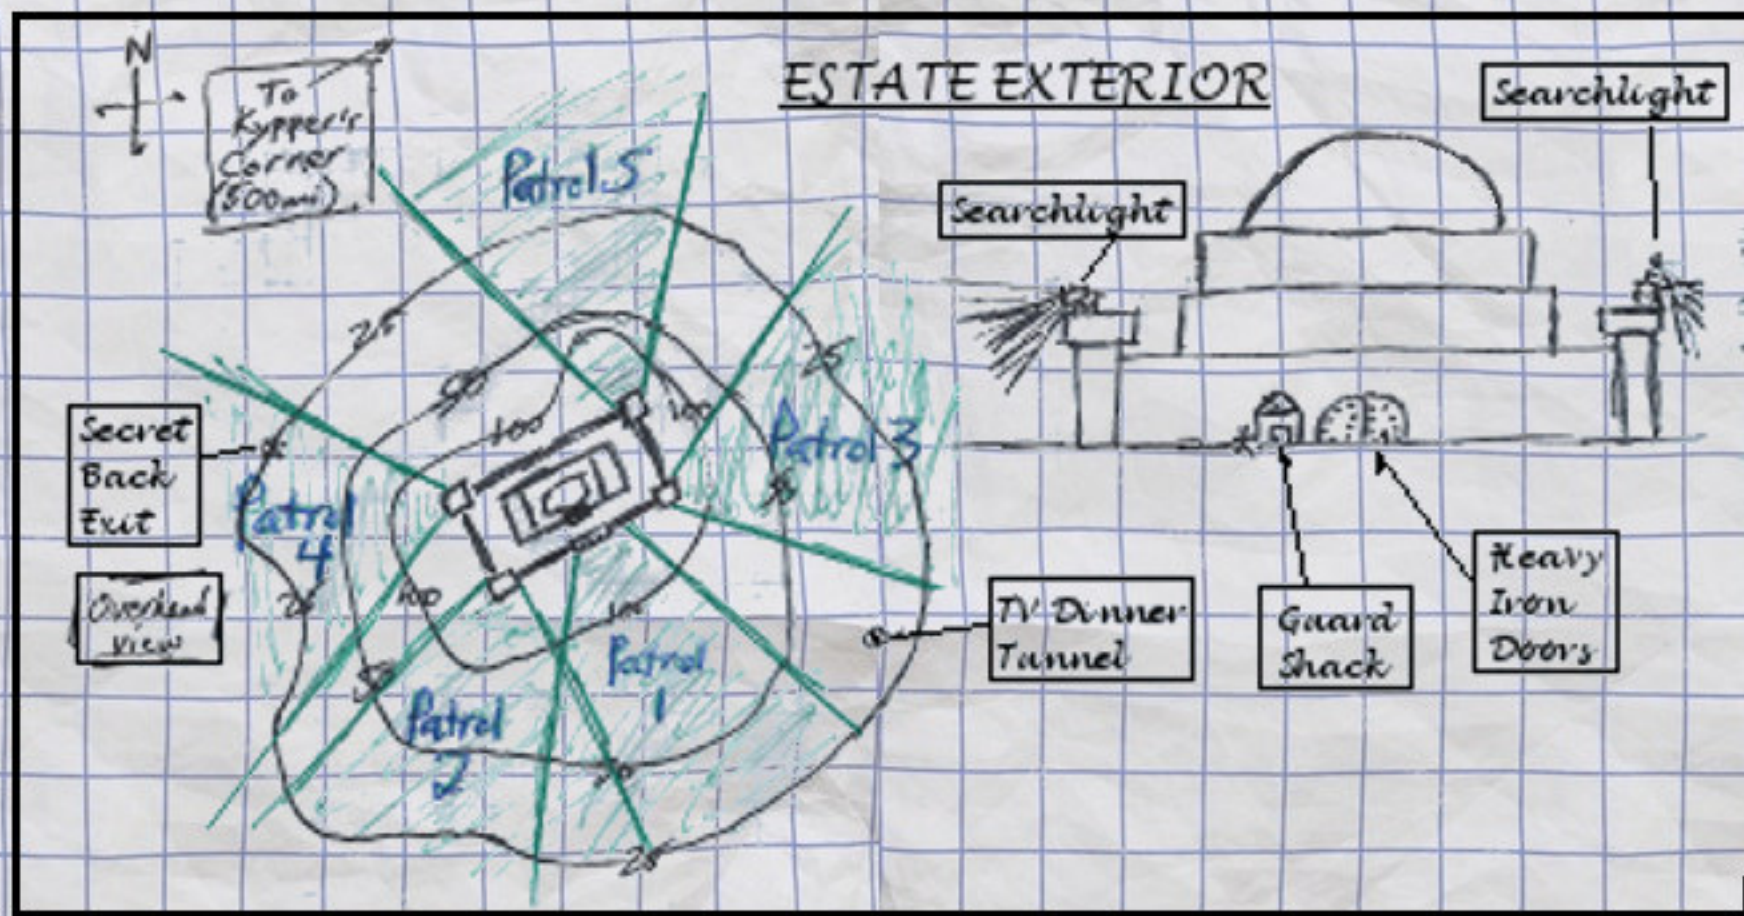 N
To
Kypper's
Corner
(500mi)
ESTATE EXTERIOR
Searchlight
Searchlight
Patrol 5
25
25
50
100
100
Patrol 3
50
Secret
Back
Exit
Patrol
4
Overhead
View
25
100
100
50
Patrol
1
Patrol
2
50
25
TV Dinner
Tunnel
Guard
Shack
Heavy
Iron
Doors